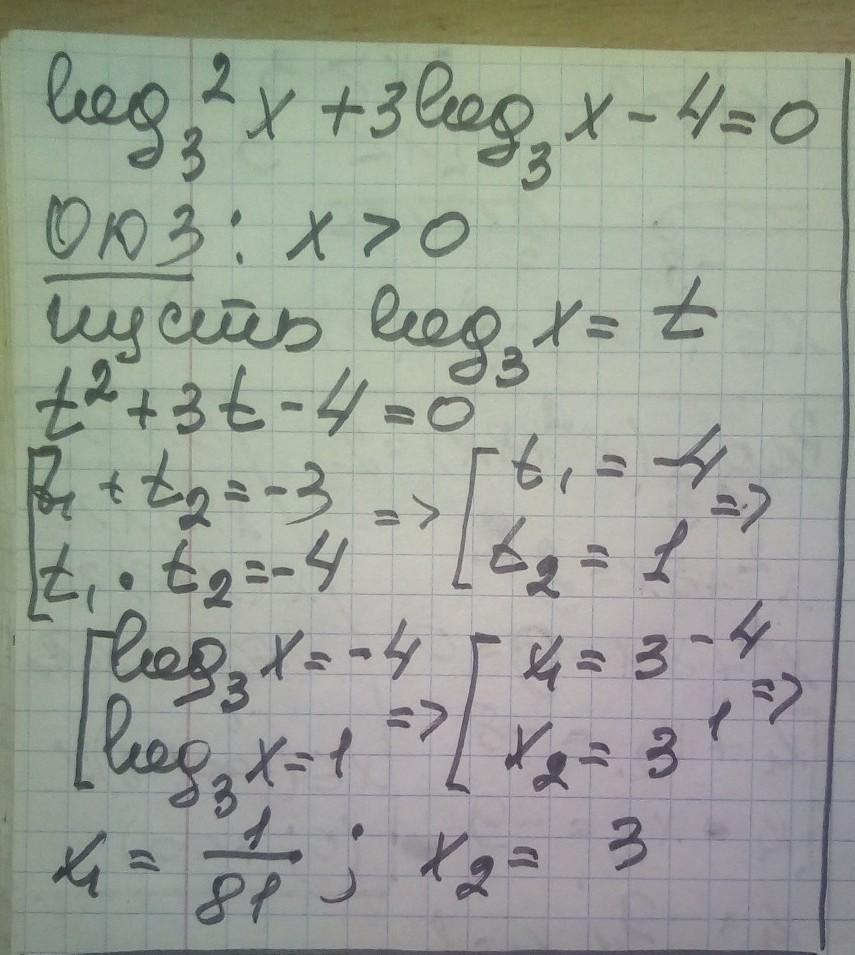 log₃² x + 3 log₃ x - 4 = 0
ОЮЗ : x > 0
пусть log₃ x = t
t² + 3t - 4 = 0
[ t₁ + t₂ = -3 => [ t₁ = -4 =>
[ t₁ · t₂ = -4 [ t₂ = 1
[ log₃ x = -4 => [ x₁ = 3⁻⁴ =>
[ log₃ x = 1 [ x₂ = 3¹
x₁ = 1/81 ; x₂ = 3